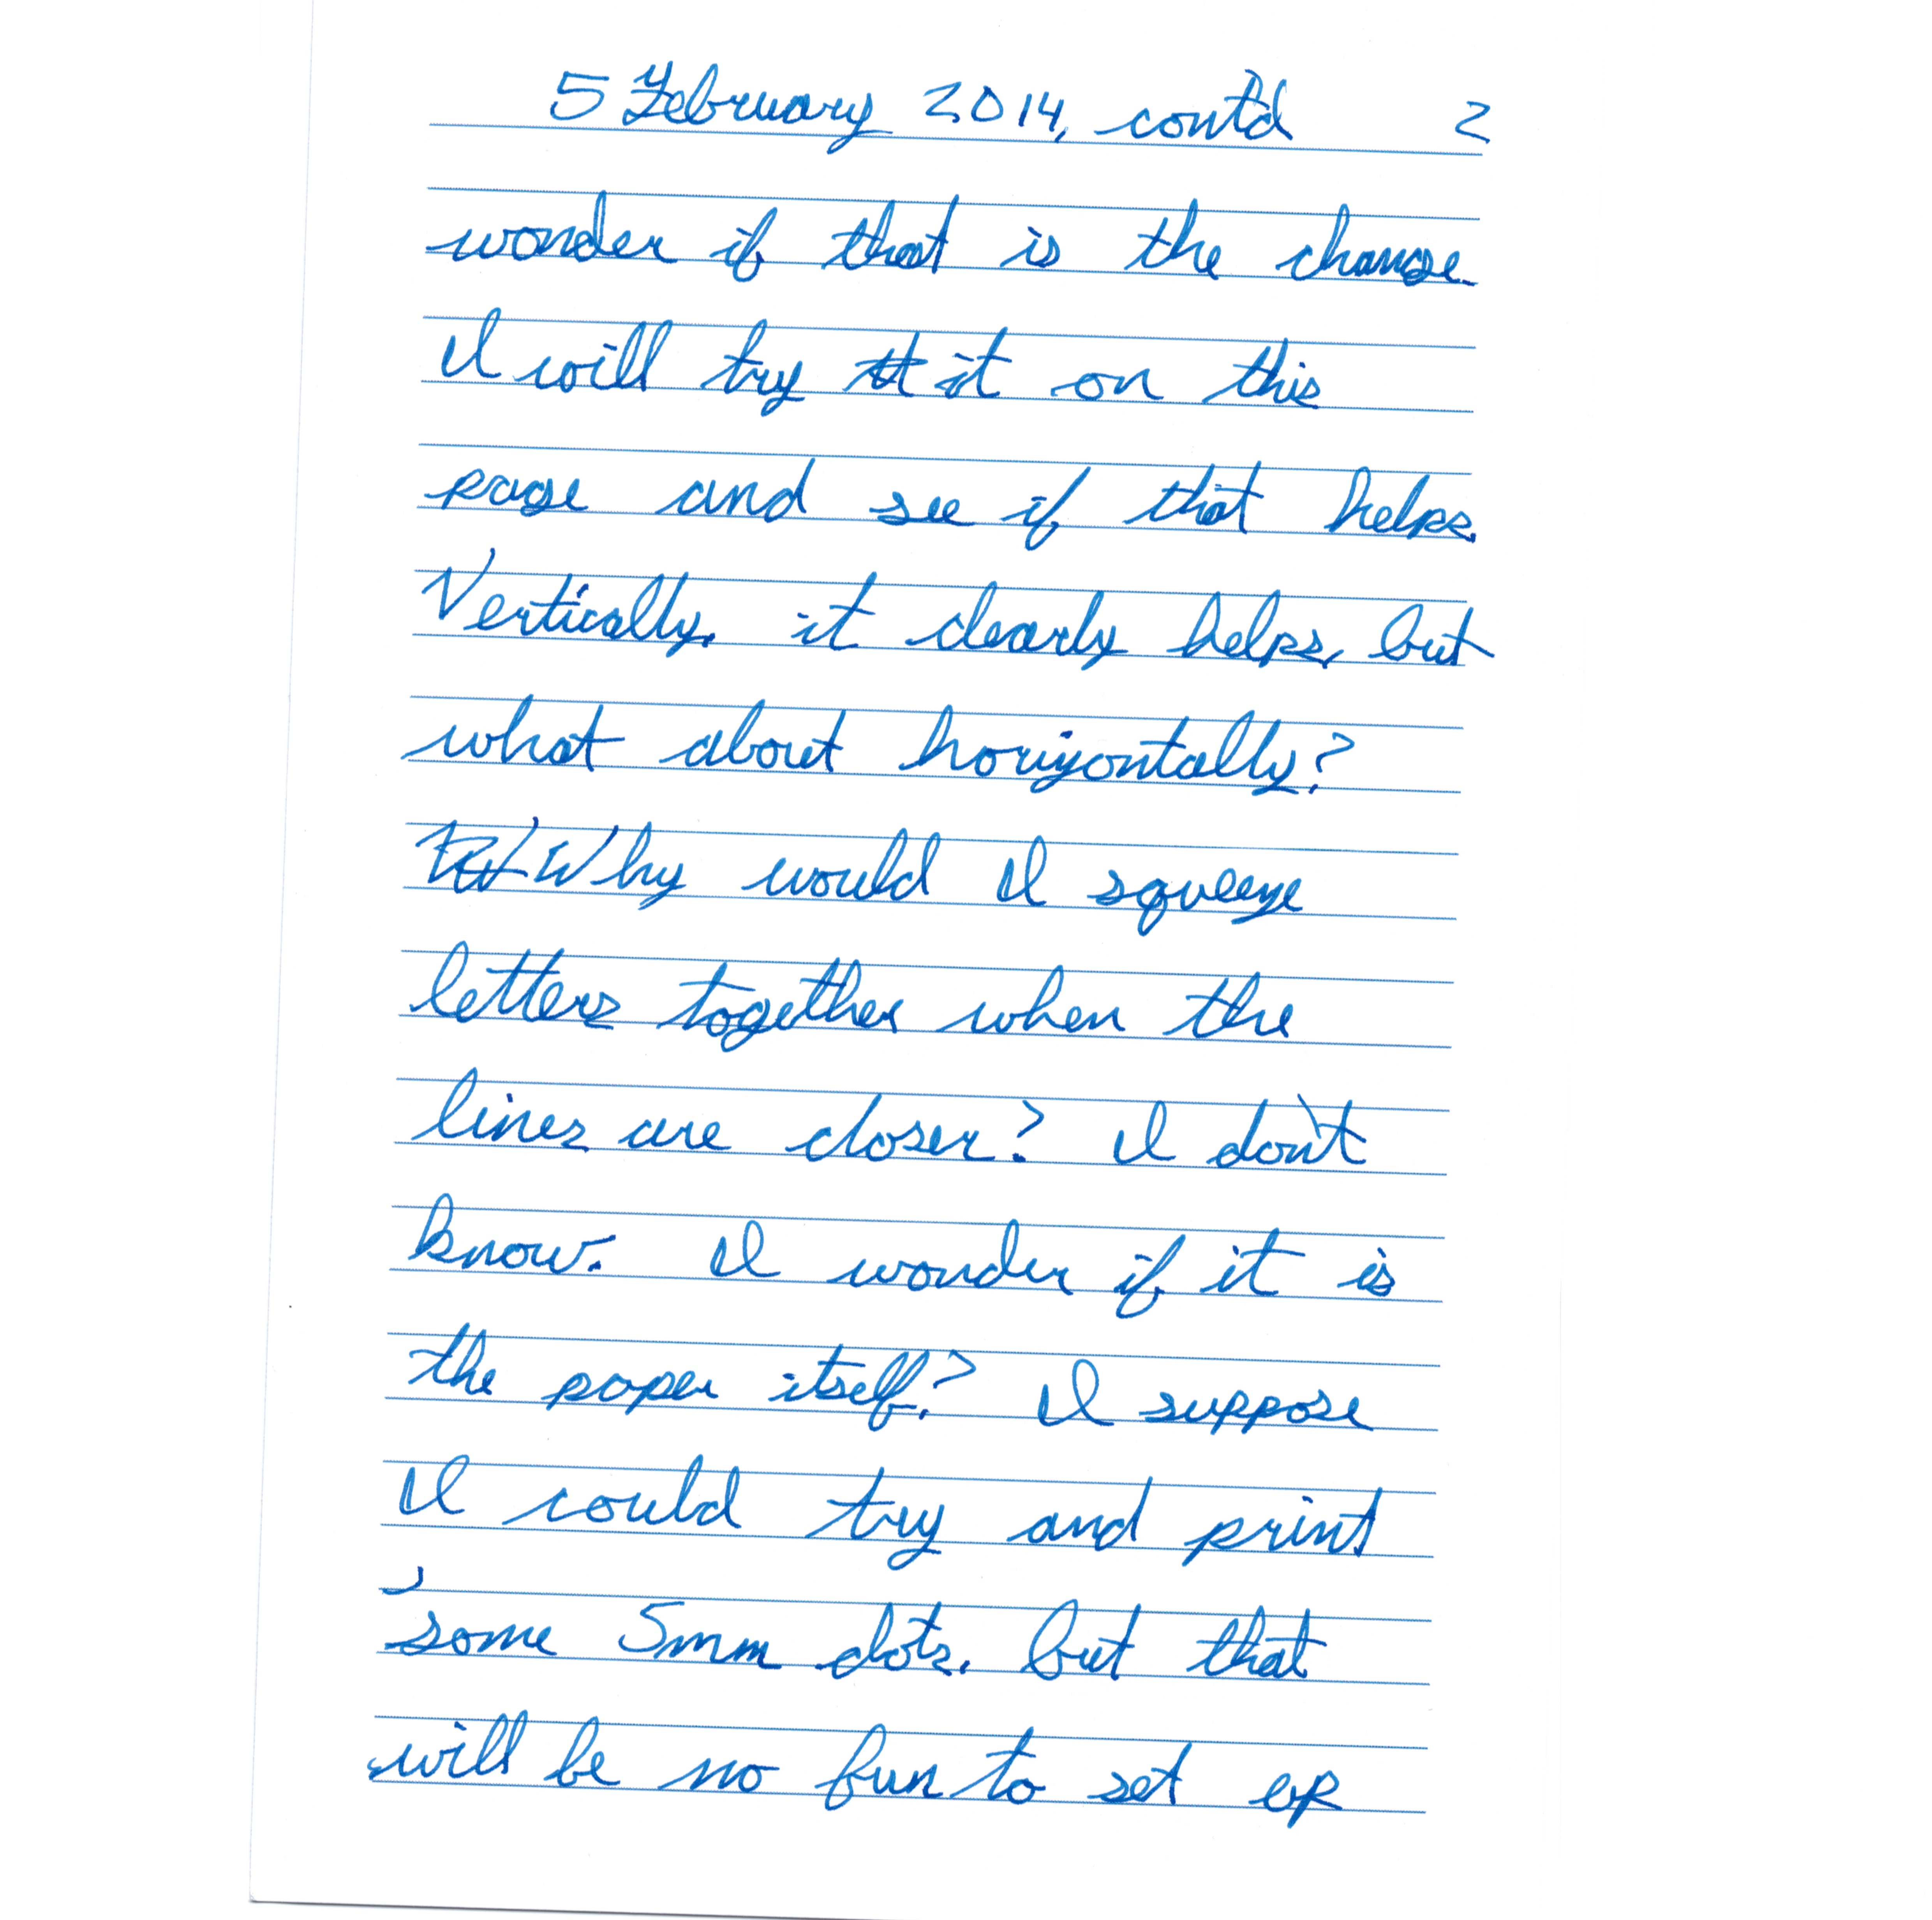 5 February 2014, cont'd 2
wonder if that is the change.
I will try it on this
page and see if that helps.
Vertically, it clearly helps, but
what about horizontally?
Why would I squeeze
letters together when the
lines are closer? I don't
know. I wonder if it is
the paper itself? I suppose
I could try and print
some 5mm dots, but that
will be no fun to set up